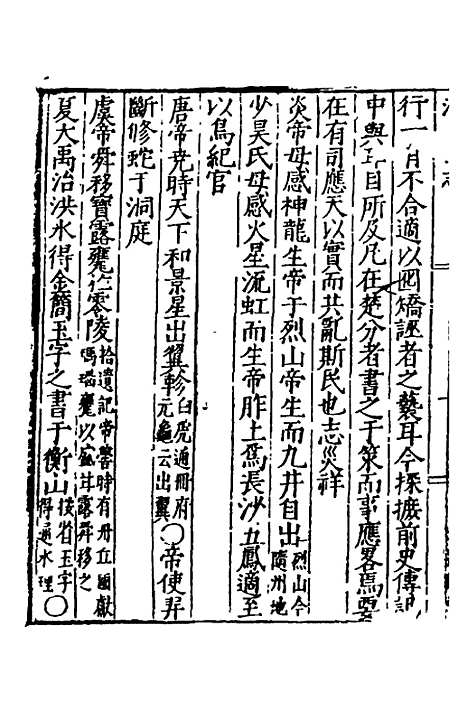 行一有不合適以啚矯誣者之蘖耳今採摭前史傳記
中與耳目所及凡在楚分者書之于策而事應畧焉要
在有司應天以實而共亂斯民也志災祥
炎帝母感神龍生帝于烈山帝生而九井自出烈山今隨州地
少昊氏母感火星流虹而生帝胙土爲長沙五鳳適至
以鳥紀官
唐帝堯時天下和景星出翼軫白虎通冊府元龜云出翼〇帝使羿
斷修蛇于洞庭
虞帝舜移寶露甕於零陵拾遺記帝嚳時有丹丘國獻瑪瑙甕以盛甘露舜移之
夏大禹治洪水得金簡玉字之書于衡山按省玉字得通水理〇